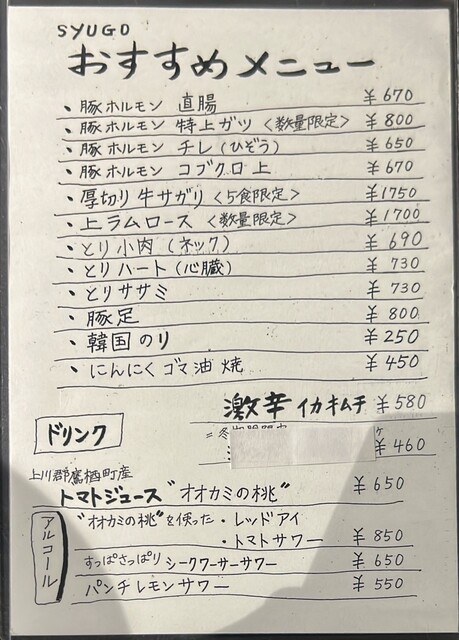 SYUGO
おすすめメニュー
・豚ホルモン 直腸 ¥670
・豚ホルモン 特上ガツ <数量限定> ¥800
・豚ホルモン チレ(ひぞう) ¥650
・豚ホルモン コブクロ 上 ¥670
・厚切り牛サガリ <5食限定> ¥1750
・上ラムロース <数量限定> ¥1700
・とり小肉(ネック) ¥690
・とりハート(心臓) ¥730
・とりササミ ¥730
・豚足 ¥800
・韓国のり ¥250
・にんにくゴマ油焼 ¥450
激辛イカキムチ ¥580
¥460
ドリンク
上川郡鷹栖町産
トマトジュース"オオカミの桃" ¥650
アルコール
"オオカミの桃"を使った・レッドアイ
・トマトサワー ¥850
すっぱさっぱり シークワーサーサワー ¥650
パンチレモンサワー ¥550